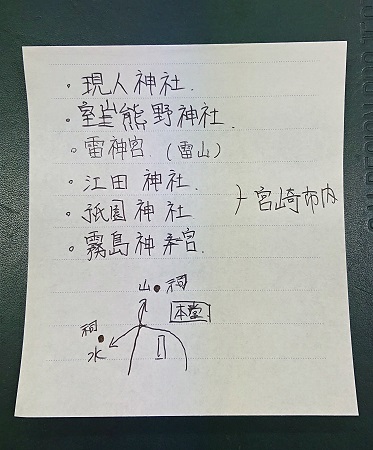 ・現人神社.
・室生熊野神社.
・雷神宮.(雷山)
・江田神社.
・祇園神社
・霧島神宮.
宮崎市内
山 祠
本堂
祠
水